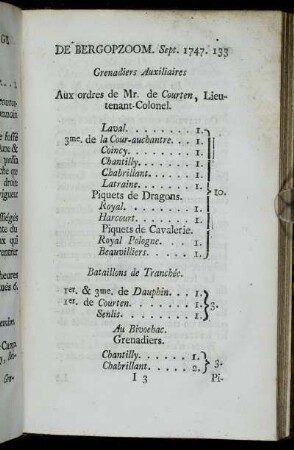 DE BERGOPZOOM. Sept. 1747. 133
Grenadiers Auxiliaires
Aux ordres de Mr. de Courten, Lieu-
tenant-Colonel.
Laval. . . . . . . . . 1.
3me. de la Cour-auchantre. . . 1.
Coincy. . . . . . . . 1.
Chantilly. . . . . . . 1.
Chabrillant. . . . . . 1.
Latraine. . . . . . . 1.
10.
Piquets de Dragons.
Royal. . . . . . . . . 1.
Harcourt. . . . . . . 1.
Piquets de Cavalerie.
Royal Pologne. . . . 1.
Beauvilliers. . . . . . 1.
Bataillons de Tranchée.
1er. & 3me. de Dauphin. . . 1.
1er. de Courten. . . . . . . 1. 3.
Senlis. . . . . . . . . 1.
Au Bivoehac.
Grenadiers.
Chantilly. . . . . . . 1.
Chabrillant. . . . . . 2. 3.
I 3 Pi-